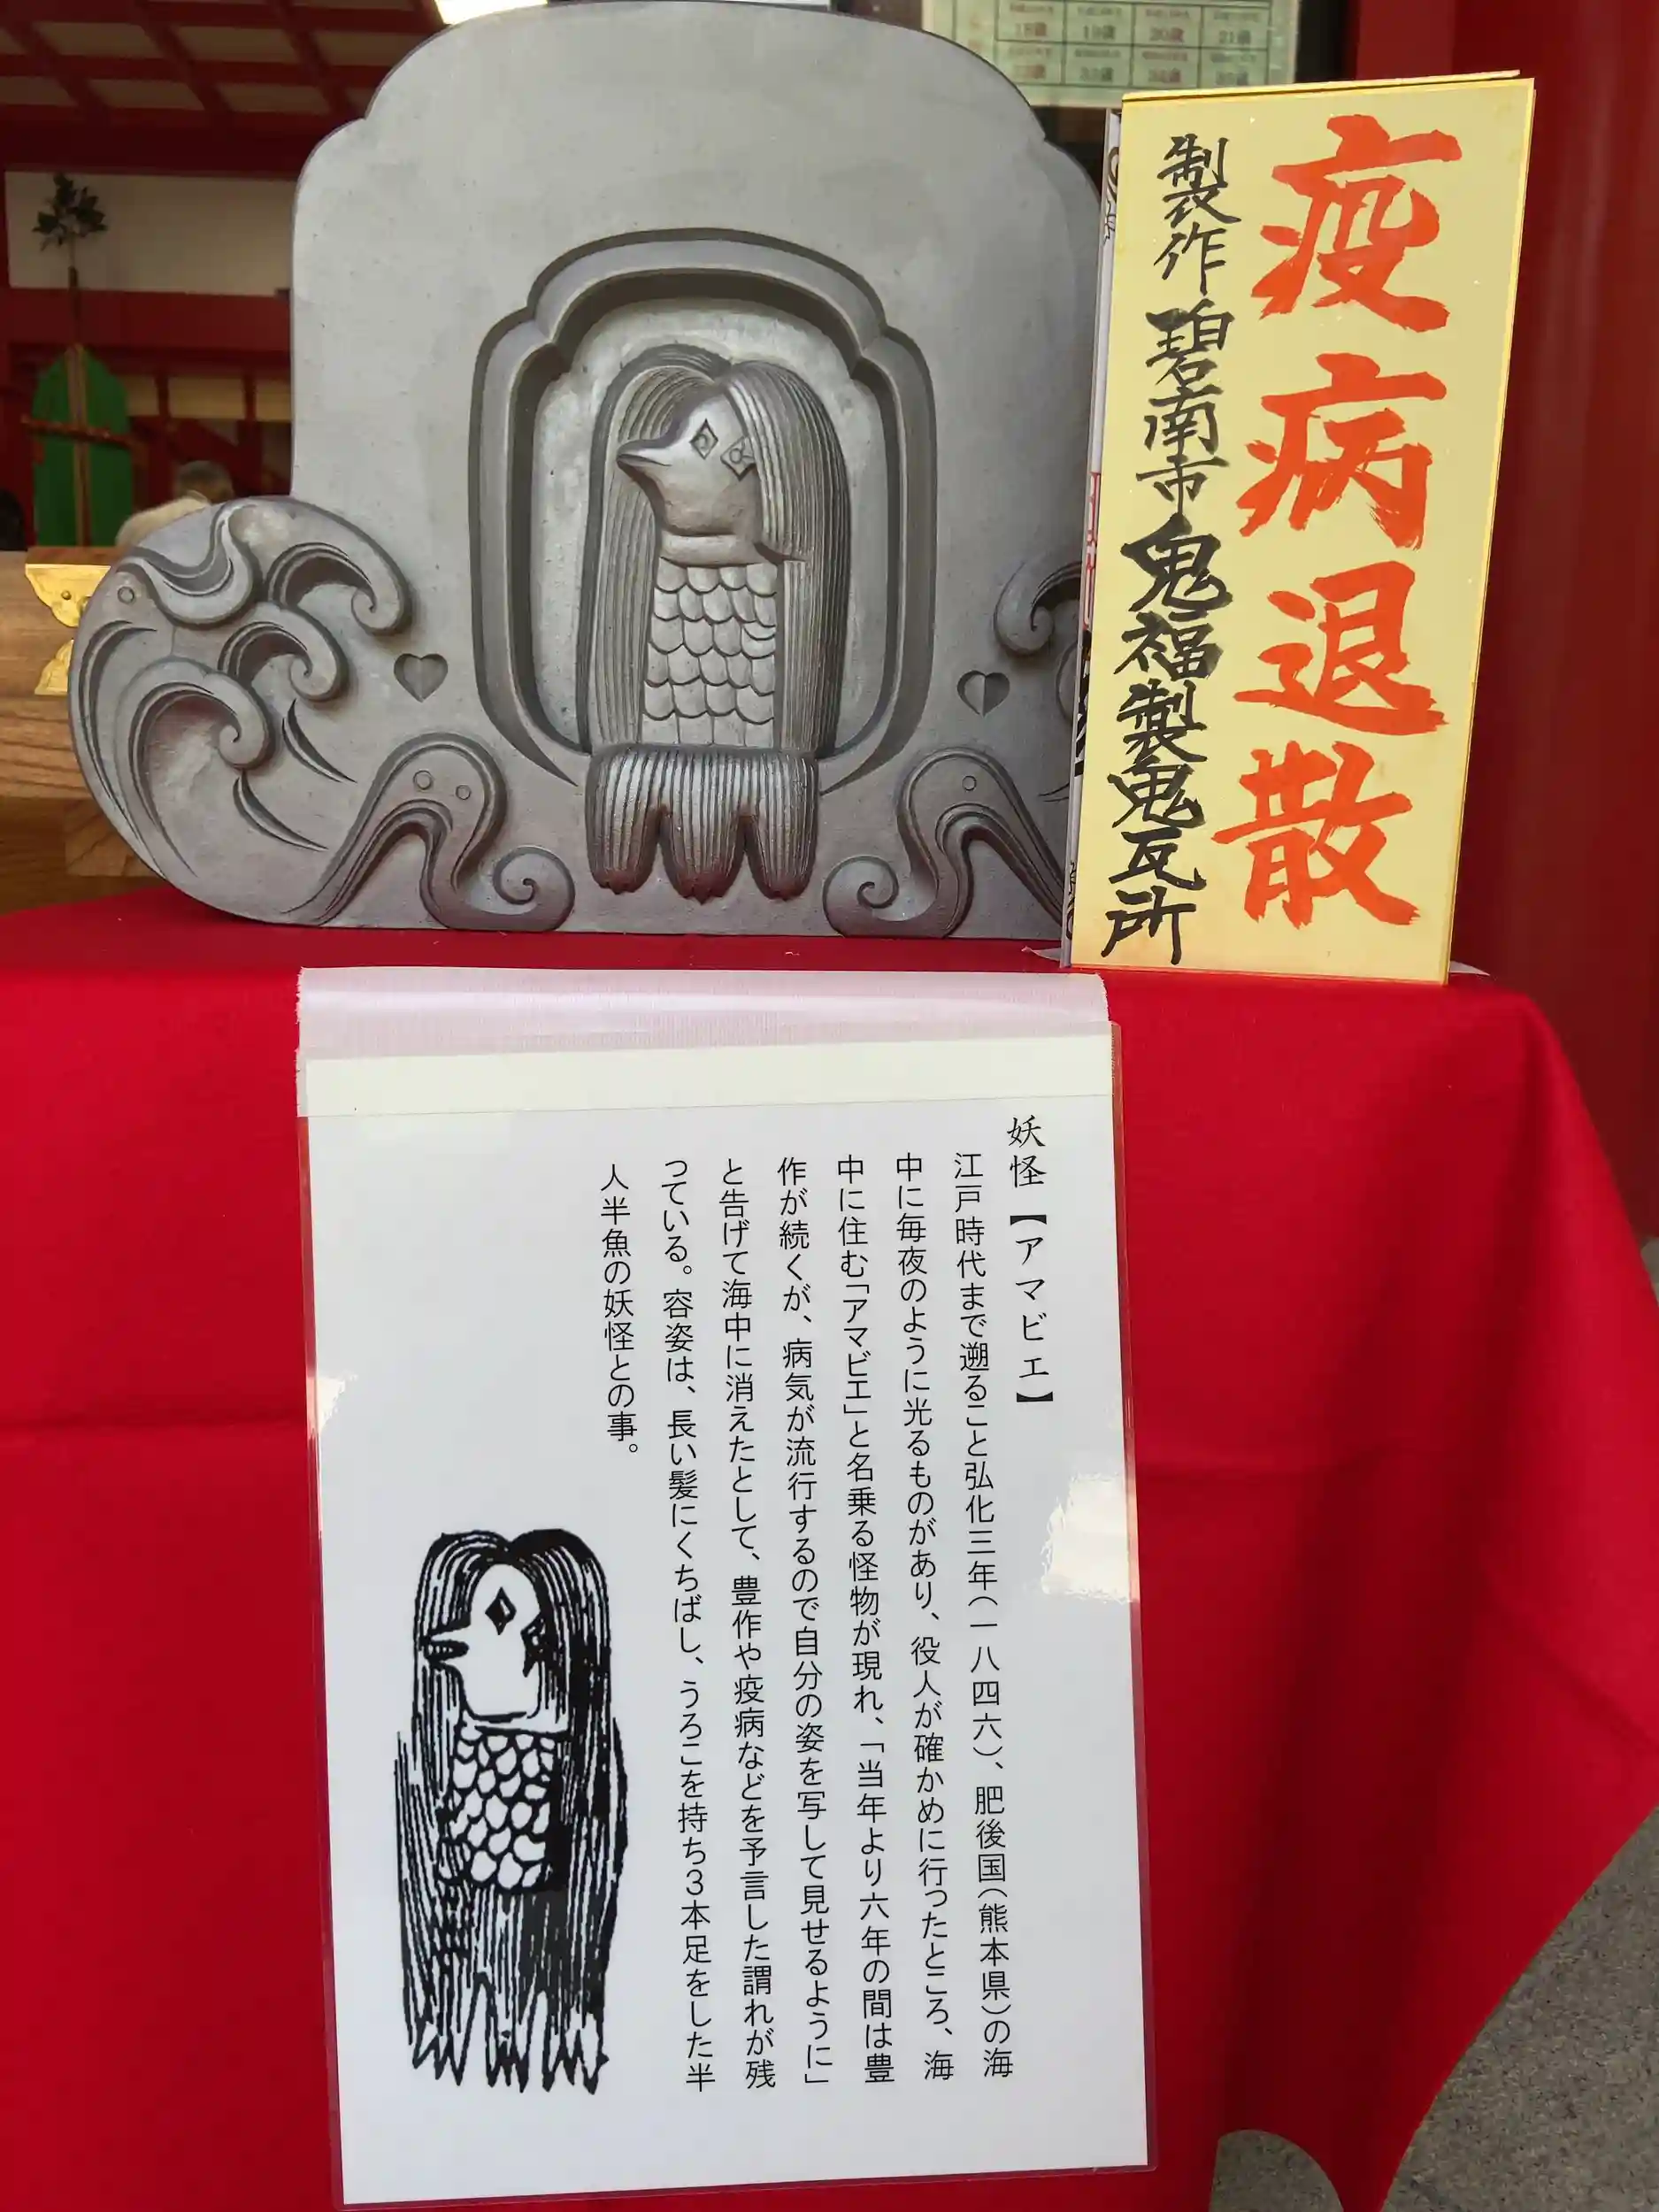 疫病退散
製作 碧南市 鬼福製鬼瓦所
18歳 19歳 20歳 21歳
妖怪【アマビエ】
江戸時代まで遡ること弘化三年(一八四六)、肥後国(熊本県)の海
中に毎夜のように光るものがあり、役人が確かめに行ったところ、海
中に住む「アマビエ」と名乗る怪物が現れ、「当年より六年の間は豊
作が続くが、病気が流行するので自分の姿を写して見せるように」
と告げて海中に消えたとして、豊作や疫病などを予言した謂れが残
っている。容姿は、長い髪にくちばし、うろこを持ち3本足をした半
人半魚の妖怪との事。